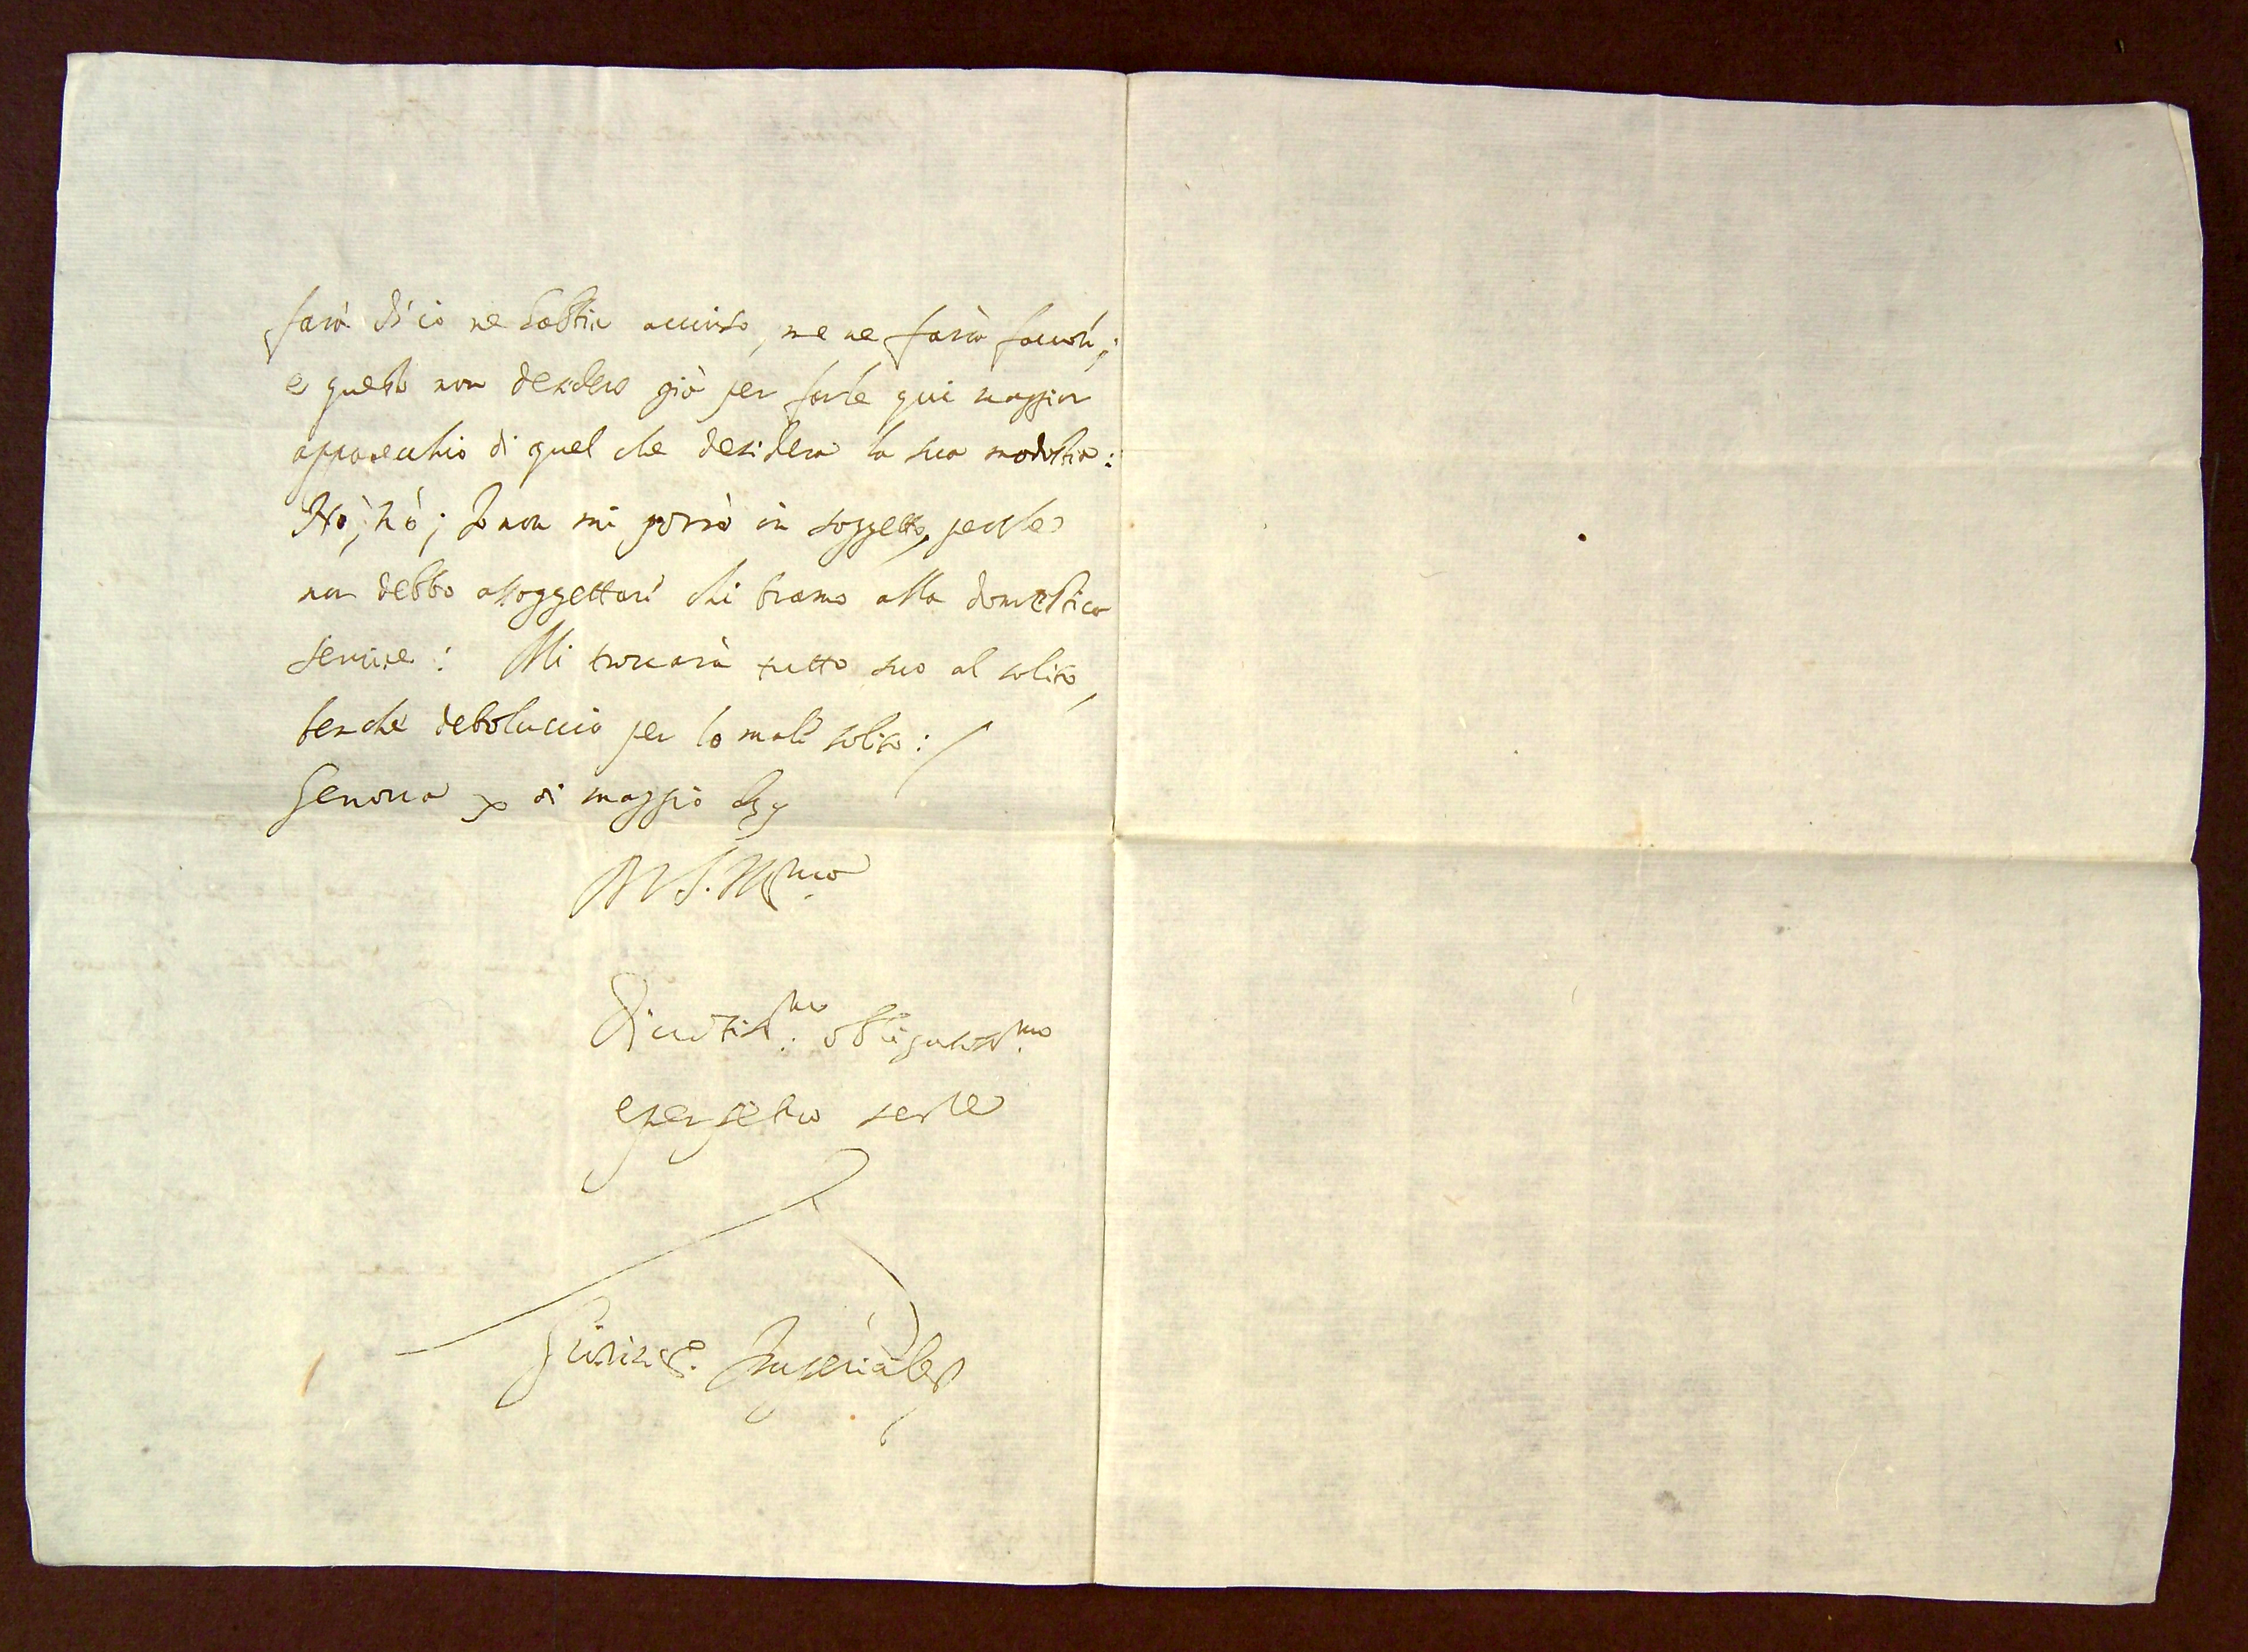 farà di cio ne habbia avviso, me ne farà favori;
e questo non desidero già per farle qui maggior
apparecchio di quel che desidera la sua modestia:
Nò, nò; Io non mi porrò in soggetto, perche
non debbo assoggettari chi bramo alla domestica
servire: Mi trovarà tutto suo al solito,
benche deboluccio per lo mali solito:
Genova x di maggio
V S. M.
Divotiss.mo obligatiss.mo
e perpetuo ser.re
Giovinc. Imperiale